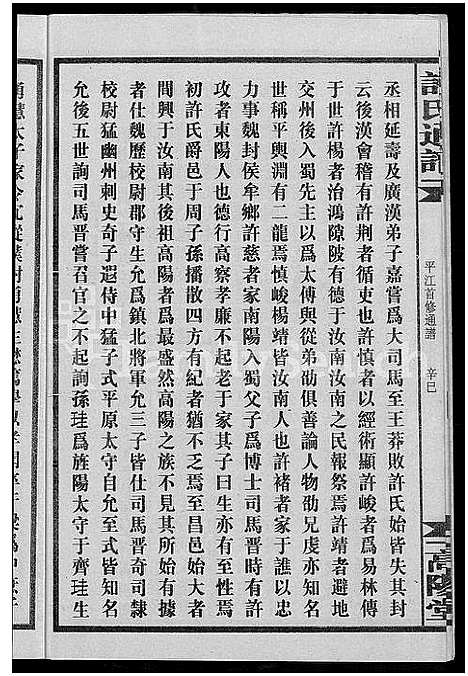 許氏通譜
平江首修通譜 辛巳
高陽堂
丞相延壽及廣漢弟子嘉嘗爲大司馬至王莽敗許氏始皆失其封
云後漢會稽有許荆者循吏也許慎者以經術顯許峻者爲易林傳
于世許楊者治鴻隙陂有德于汝南汝南之民報祭焉許靖者避地
交州後入蜀先主以爲太傅與從弟劭俱善論人物劭兄虔亦知名
世稱平輿淵有二龍焉慎峻楊靖皆汝南人也許褚者家于譙以忠
力事魏封侯牟鄉許慈者家南陽入蜀父子爲博士司馬晉時有許
攻者東陽人也德行高察孝廉不起老于家其子曰生亦有至性焉
初許氏爵邑于周子孫播散四方有紀者猶不乏焉至昌邑始大者
間興于汝南其後祖高陽者爲最盛然高陽之族不見其所始有據
者仕魏歷校尉郡守生允爲鎮北將軍允三子皆仕司馬晉奇司隸
校尉猛幽州刺史奇子遐侍中猛子式平原太守自允至式皆知名
允後五世詢司馬晉嘗召官之不起詢孫珪爲旌陽太守于齊珪生